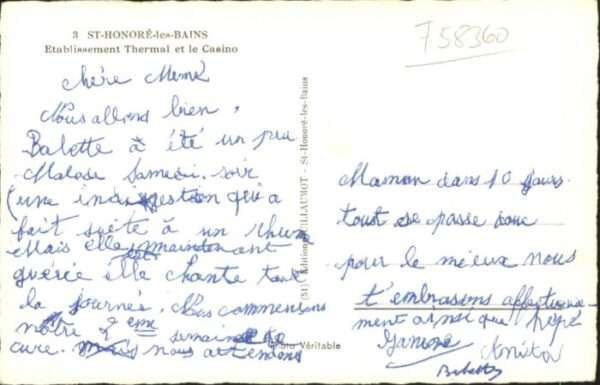 3 ST-HONORÉ-les-BAINS
Etablissement Thermal et le Casino
F58360
chère Memé
Nous allons bien,
Babette à été un peu
Malade Samedi soir
(une indigestion qui a
fait suite à un rhume
Mais elle est maintenant
guérie elle chante tout
la journée. Nous commensons
notre 2eme semaine de
cure. nous attendons
Maman dans 10 jours.
tout se passe donc
pour le mieux nous
t'embrasons affectueuse-
ment ainsi que pépé
Babette
(51) Edition GUILLAUMOT - St-Honoré-les-Bains
Photo Véritable